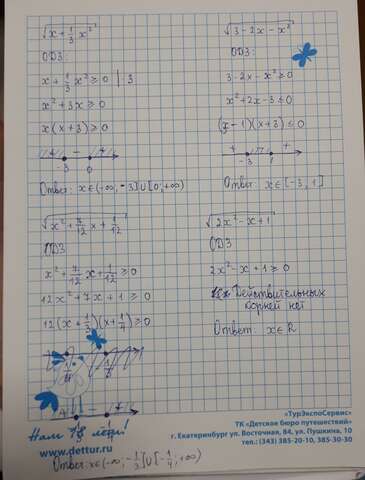 √(x + 1/3 x²)
ОДЗ:
x + 1/3 x² ≥ 0 | 3
x² + 3x ≥ 0
x(x + 3) ≥ 0
+ - +
-3 0
Ответ: x∈(-∞, -3]∪[0, +∞)
√(3 - 2x - x²)
ОДЗ:
3 - 2x - x² ≥ 0
x² + 2x - 3 ≤ 0
(x - 1)(x + 3) ≤ 0
+ - +
-3 1
Ответ: x∈[-3, 1]
√(x² + 7/12 x + 1/12)
ОДЗ
x² + 7/12 x + 1/12 ≥ 0
12x² + 7x + 1 ≥ 0
12(x + 1/3)(x + 1/4) ≥ 0
√(2x² - x + 1)
ОДЗ
2x² - x + 1 ≥ 0
Действительных
корней нет
Ответ: x∈R
Нам 18 лет!
www.dettur.ru
«ТурЭкспоСервис»
ТК «Детское бюро путешествий»
г. Екатеринбург ул. Восточная, 84, ул. Пушкина, 10
тел.: (343) 385-20-10, 385-30-30
Ответ: x∈(-∞, -1/3]∪[-1/4, +∞)